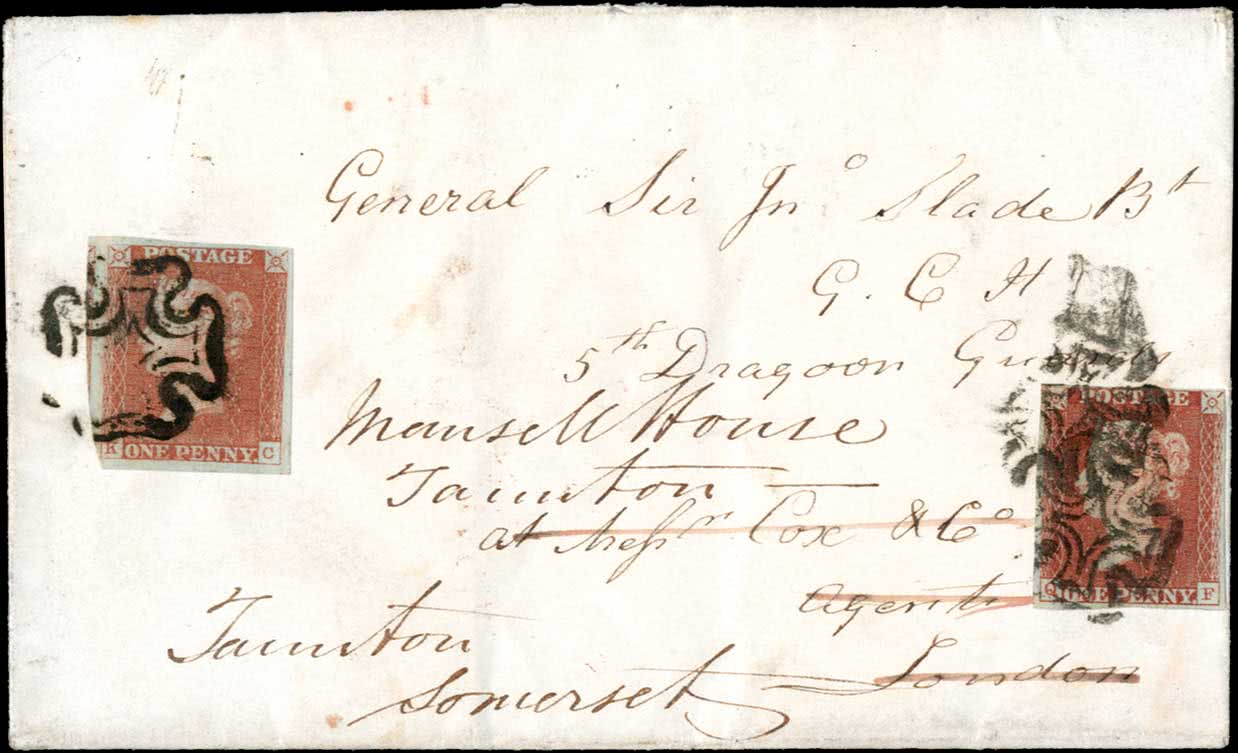 General Sir Jnº Slade Bt
G. C H
5th Dragoon Guards
Mansell House
Taunton
at Messrs Cox & Co
Agents
London
Taunton
Somerset
POSTAGE
K ONE PENNY. C
POSTAGE
Q ONE PENNY. F